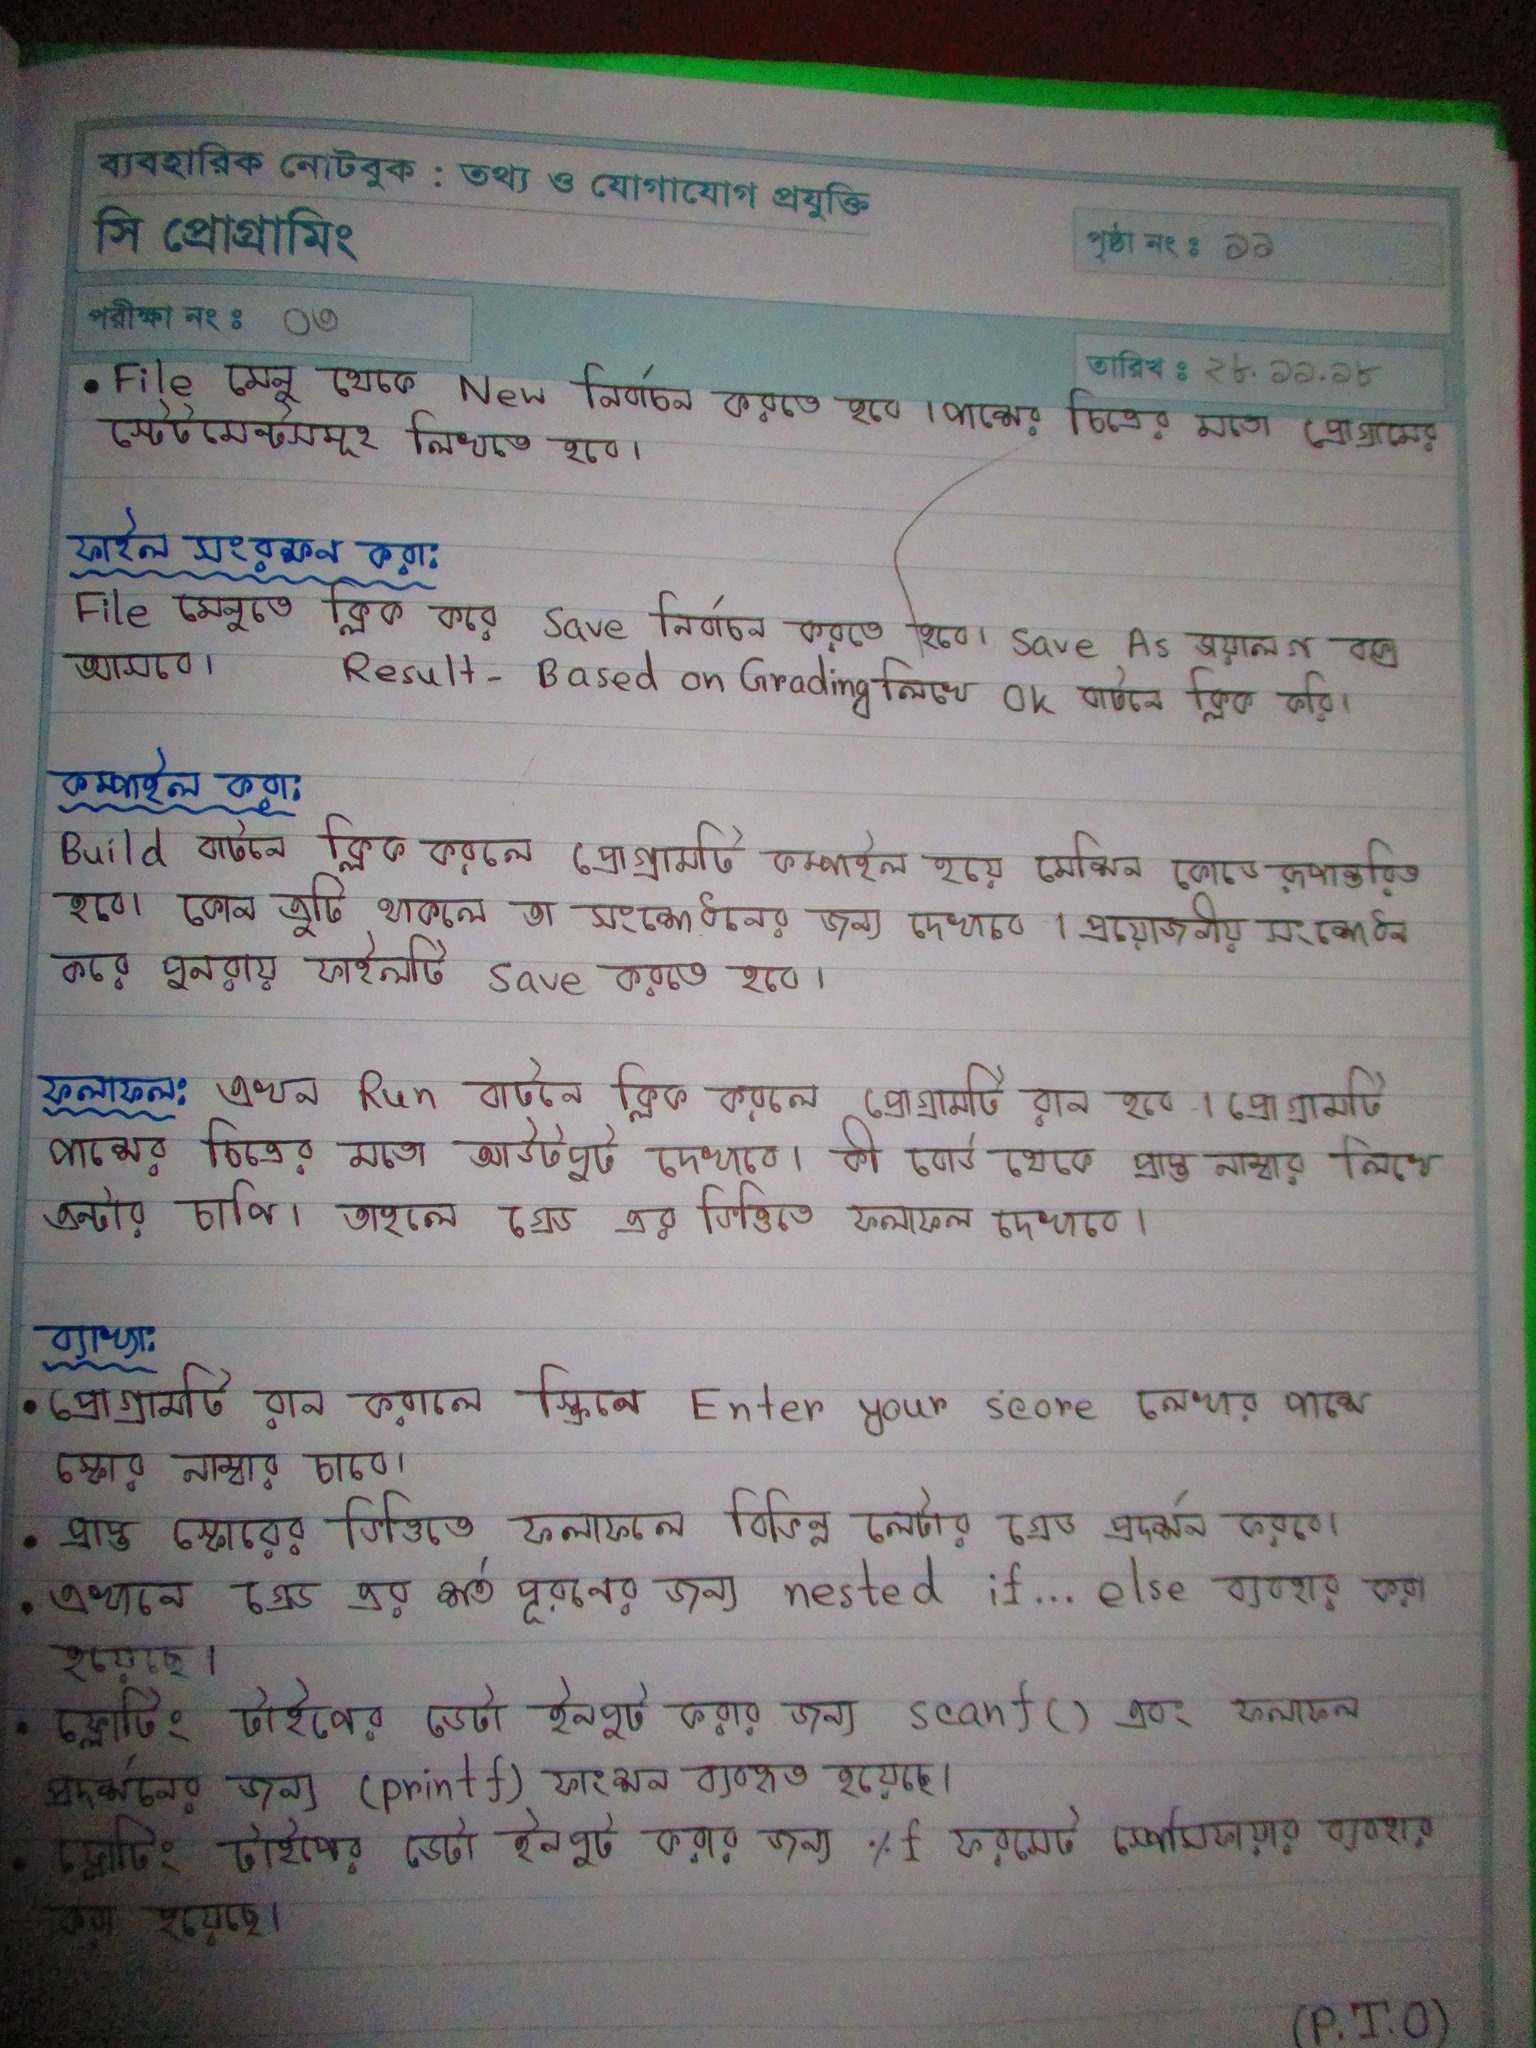 ব্যবহারিক নোটবুক : তথ্য ও যোগাযোগ প্রযুক্তি
সি প্রোগ্রামিং
পৃষ্ঠা নং : ১১
পরীক্ষা নং : ০৩
তারিখ : ২৮.১১.১৮
• File মেনু থেকে New নির্বাচন করতে হবে। পাশের চিত্রের মতো প্রোগ্রামের
স্টেটমেন্টসমূহ লিখতে হবে।
ফাইল সংরক্ষন করা:
File মেনুতে ক্লিক করে Save নির্বাচন করতে হবে। Save As ডায়ালগ বক্স
আসবে। Result - Based on Grading লিখে Ok বাটনে ক্লিক করি।
কম্পাইল করা:
Build বাটনে ক্লিক করলে প্রোগ্রামটি কম্পাইল হয়ে মেশিন কোডে রূপান্তরিত
হবে। কোন ত্রুটি থাকলে তা সংশোধনের জন্য দেখাবে। প্রয়োজনীয় সংশোধন
করে পুনরায় ফাইলটি save করতে হবে।
ফলাফল: এখন Run বাটনে ক্লিক করলে প্রোগ্রামটি রান হবে। প্রোগ্রামটি
পাশের চিত্রের মতো আউটপুট দেখাবে। কী বোর্ড থেকে প্রাপ্ত নাম্বার লিখে
এন্টার চাপি। তাহলে গ্রেড এর ভিত্তিতে ফলাফল দেখাবে।
ব্যাখ্যা:
• প্রোগ্রামটি রান করালে স্ক্রিনে Enter your score লেখার পাশে
স্কোর নাম্বার চাবে।
• প্রাপ্ত স্কোরের ভিত্তিতে ফলাফলে বিভিন্ন লেটার গ্রেড প্রদর্শন করবে।
• এখানে গ্রেড এর শর্ত পূরনের জন্য nested if... else ব্যবহার করা
হয়েছে।
• ফ্লোটিং টাইপের ডেটা ইনপুট করার জন্য scanf() এবং ফলাফল
প্রদর্শনের জন্য (printf) ফাংশন ব্যবহৃত হয়েছে।
• ফ্লোটিং টাইপের ডেটা ইনপুট করার জন্য %f ফরমেট স্পেসিফায়ার ব্যবহার
করা হয়েছে।
(P.T.O)